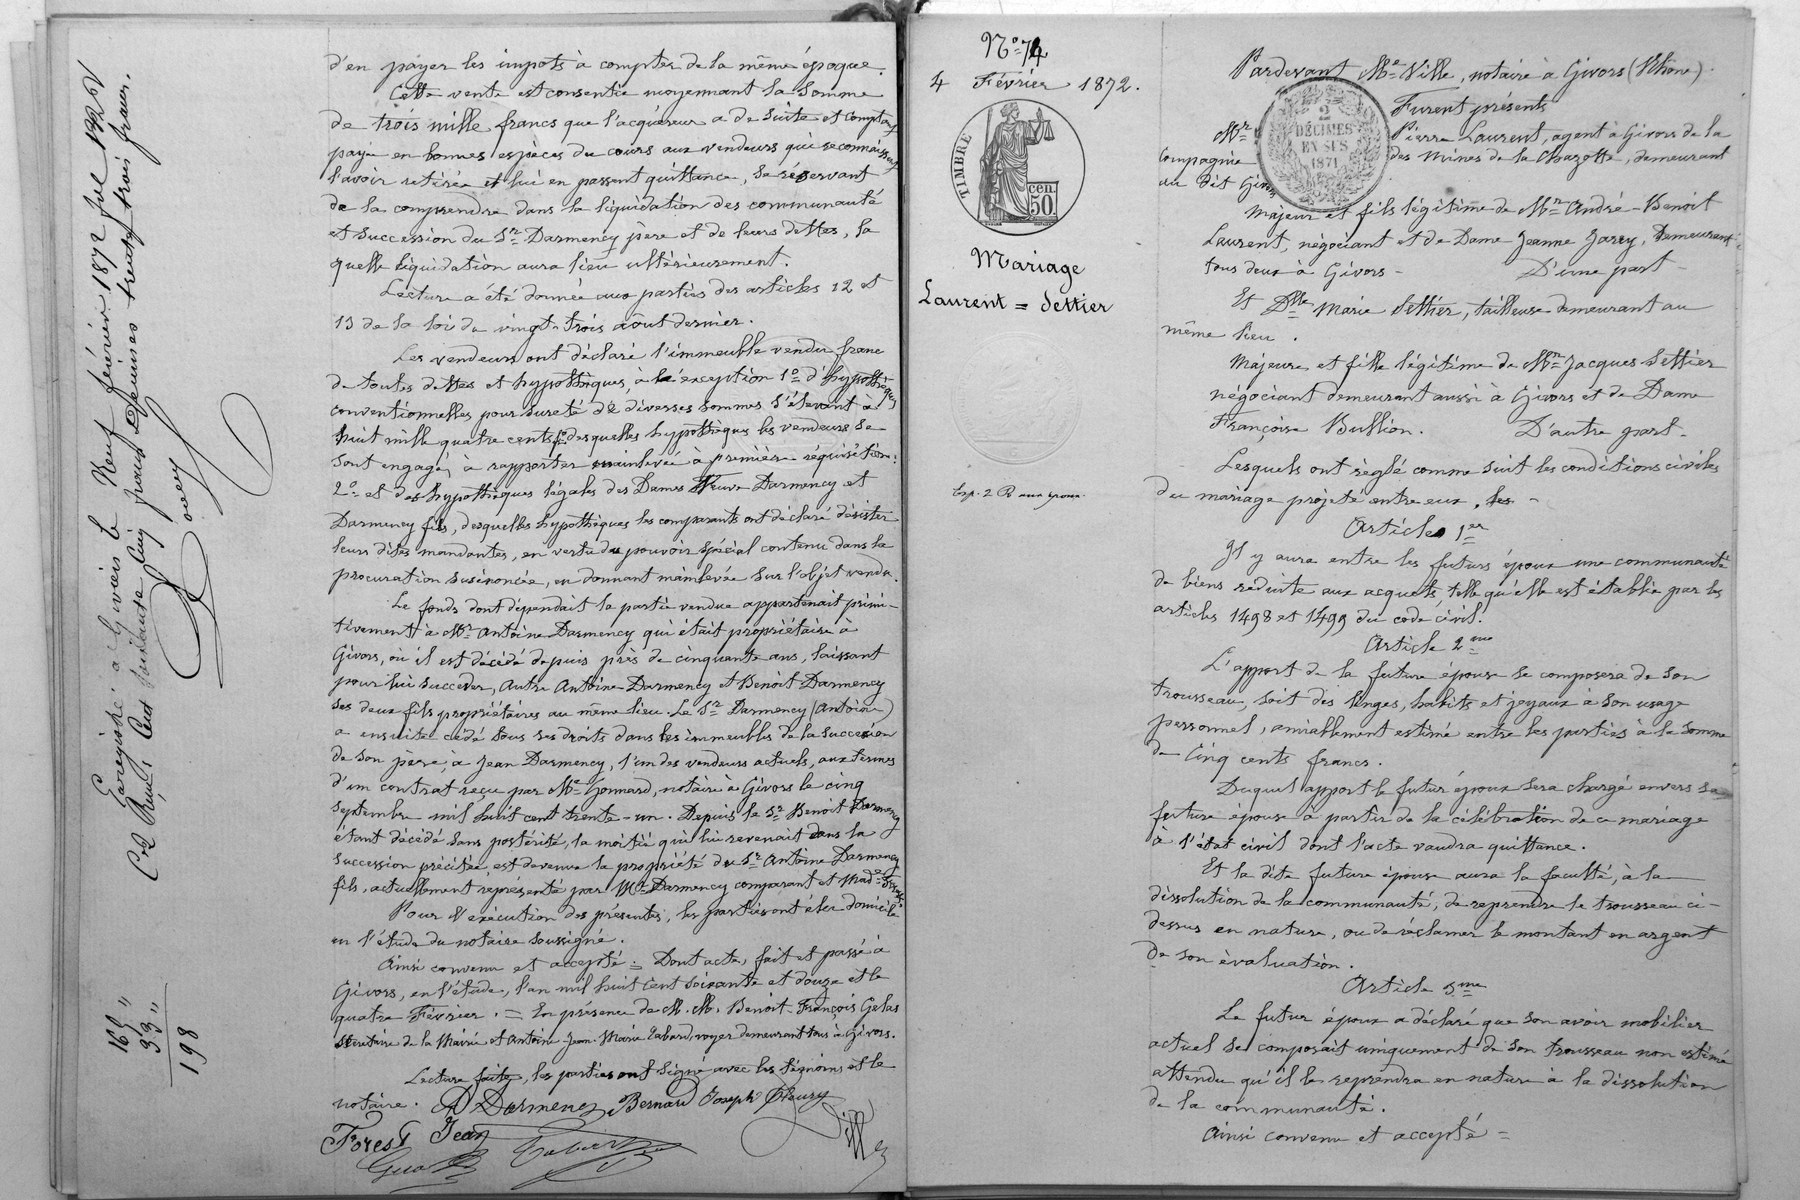 d'en payer les impots à compter de la même époque.
Cette vente est consentie moyennant la somme
de trois mille francs que l'acquéreur a de suite et comptant
payée en bonnes espèces du cours aux vendeurs qui reconnaissent
l'avoir retirée et lui en passent quittance, se réservant
de la comprendre dans la liquidation des communauté
et succession du Sr Darmency pere et de leurs dettes, la
quelle liquidation aura lieu ultérieurement.
Lecture a été donnée aux parties des articles 12 et
13 de la loi du vingt-trois août dernier.
Les vendeurs ont déclaré l'immeuble vendu franc
de toutes dettes et hypothèques, à l'exception 1o d'hypothèques
conventionnelles pour sureté de diverses sommes s'élevant à
huit mille quatre cents fr desquelles hypothèques les vendeurs se
sont engagé, à rapporter mainlevée à première réquisition:
2o et des hypothèques légales des Dames Veuve Darmency et
Darmency fils, desquelles hypothèques les comparants ont déclaré désister
leurs dites mandantes, en vertu du pouvoir spécial contenu dans la
procuration susénoncée, en donnant mainlevée sur l'objet vendu.
Le fonds dont dépendait la partie vendue appartenait primi-
tivement à Mr Antoine Darmency qui était propriétaire à
Givors, où il est décédé depuis près de cinquante ans, laissant
pour lui succéder, autre Antoine Darmency et Benoit Darmency
ses deux fils propriétaires au même lieu. Le Sr Darmency (Antoine)
a ensuite cédé tous ses droits dans les immeubles de la succession
de son père, à Jean Darmency, l'un des vendeurs actuels, aux termes
d'un contrat reçu par Me Gonnard, notaire à Givors le cinq
septembre mil huit cent trente-un. Depuis le Sr Benoit Darmency
étant décédé sans postérité, la moitié qui lui revenait dans la
succession précitée, est devenue la propriété du Sr Antoine Darmency
fils, actuellement représenté par Mr Darmency comparant et Made
Pour l'exécution des présentes, les parties ont élu domicile
en l'étude du notaire soussigné.
Ainsi convenu et accepté = Dont acte, fait et passé à
Givors, en l'étude, l'an mil huit cent soixante et douze et le
quatre Février. = En présence de M. M. Benoit-François Gelas
secrétaire de la Mairie et Antoine-Jean-Marie Tabard, voyer demeurant tous à Givors.
Lecture faite, les parties ont signé avec les témoins et le
notaire. A Darmency Bernard Joseph Fleury
Forest Jean
Enregistré à Givors le Neuf février 1872
Reçu, Cent soixante Cinq francs Décimes trente trois francs.
165 "
33 "
198
No 74
4 Février 1872.
TIMBRE
cen.
50.
Mariage
Laurent = Settier
Exp. 2 R aux époux.
2
DÉCIMES
EN SUS
1871
Pardevant Me Ville, notaire à Givors (Rhône).
Furent présents
Mr Pierre Laurent, agent à Givors de la
Compagnie des Mines de la Chazotte, demeurant
au dit Givors
Majeur et fils légitime de Mr André-Benoit
Laurent, négociant et de Dame Jeanne Jarey, demeurant
tous deux à Givors - D'une part -
Et Dlle Marie Settier, tailleuse demeurant au
même lieu.
Majeure et fille légitime de Mr Jacques Settier
négociant demeurant aussi à Givors et de Dame
Françoise Bullion. D'autre part -
Lesquels ont réglé comme suit les conditions civiles
du mariage projeté entre eux.
Article 1er
Il y aura entre les futurs époux une communauté
de biens réduite aux acquets, telle qu'elle est établie par les
articles 1498 et 1499 du code civil.
Article 2me
L'apport de la future épouse se composera de son
trousseau, soit des linges, habits et joyaux à son usage
personnel, amiablement estimé entre les parties à la somme
de Cinq cents francs.
Duquel apport le futur époux sera chargé envers sa
future épouse à partir de la célébration de ce mariage
à l'état civil dont l'acte vaudra quittance.
Et la dite future épouse aura la faculté, à la
dissolution de la communauté, de reprendre le trousseau ci-
dessus en nature, ou de réclamer le montant en argent
de son évaluation.
Article 3me
Le futur époux a déclaré que son avoir mobilier
actuel se composait uniquement de son trousseau non estimé
attendu qu'il le reprendra en nature à la dissolution
de la communauté.
Ainsi convenu et accepté =